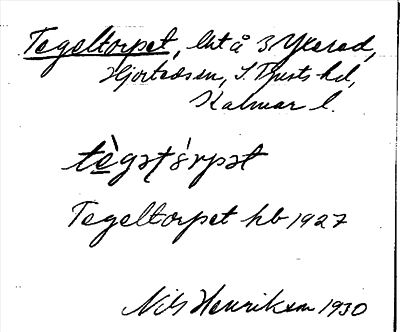 Tegeltorpet, lht å 3 Ykerad,
Hjorteds sn, S. Tjusts hd,
Kalmar l.
tègəṭórpət
Tegeltorpet hb 1927
Nils Henrikson 1930